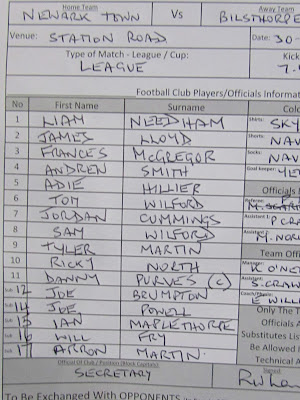 Home Team Away Team
NEWARK TOWN Vs BILSTHORPE
Venue: STATION ROAD Date: 30-
Type of Match - League / Cup: Kick
LEAGUE
Football Club Players/Officials Informat
No First Name Surname Colo
1 LIAM NEEDHAM Shirts: SKY
2 JAMES LLOYD Shorts: NAV
3 FRANCES McGREGOR Socks: NAV
4 ANDREN SMITH Goal Keeper: YE
5 ADIE HILLIER Officials
6 TOM WILFORD Referee:
7 JORDAN CUMMINGS Assistant 1: P CRA
8 SAM WILFORD Assistant 2: M. NOR
9 TYLER MARTIN Team Offi
10 RICKY NORTH Manager: R O'NE
11 DANNY PURVES (C) Assistant: S. CRAW
Sub 12 JOE BRUMPTON Coach/Physio: E WILL
Sub 14 JOE POWELL Only The T
Sub 15 IAN MAPLETHORPE Officials A
Sub 16 WILL FRY Substitutes Lis
Sub 17 ARRON MARTIN Be Allowed I
Technical A
Official of Club / Position (Block Capitals) Signed
SECRETARY
To Be Exchanged With OPPONENTS